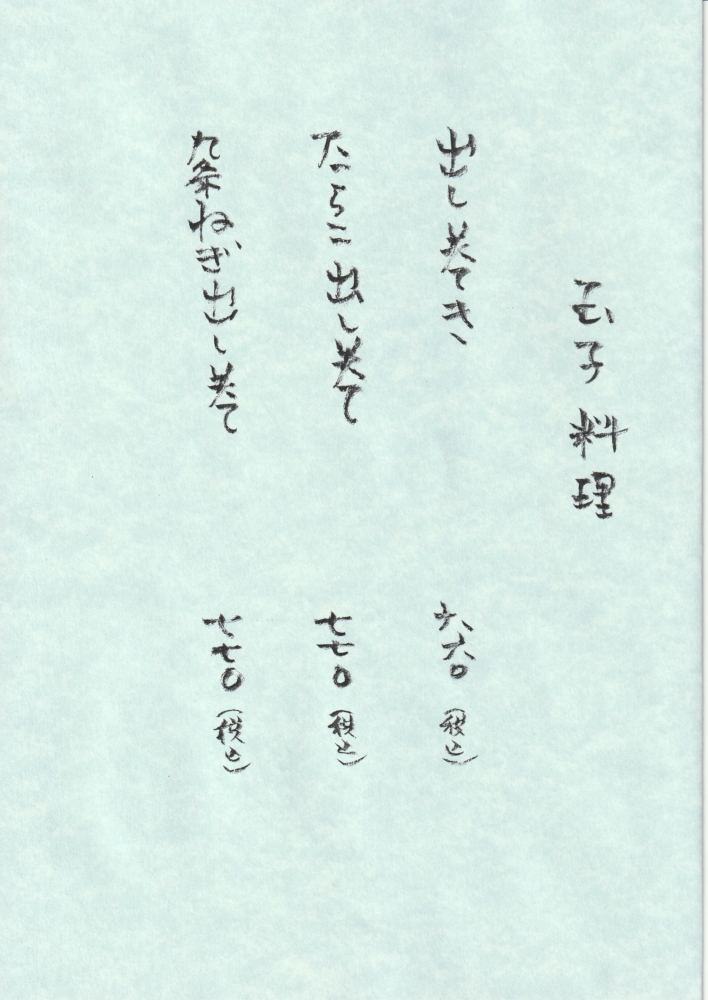 玉子料理
出し巻き 六六〇(税込)
たらこ出し巻 七七〇(税込)
九条ねぎ出し巻 七七〇(税込)